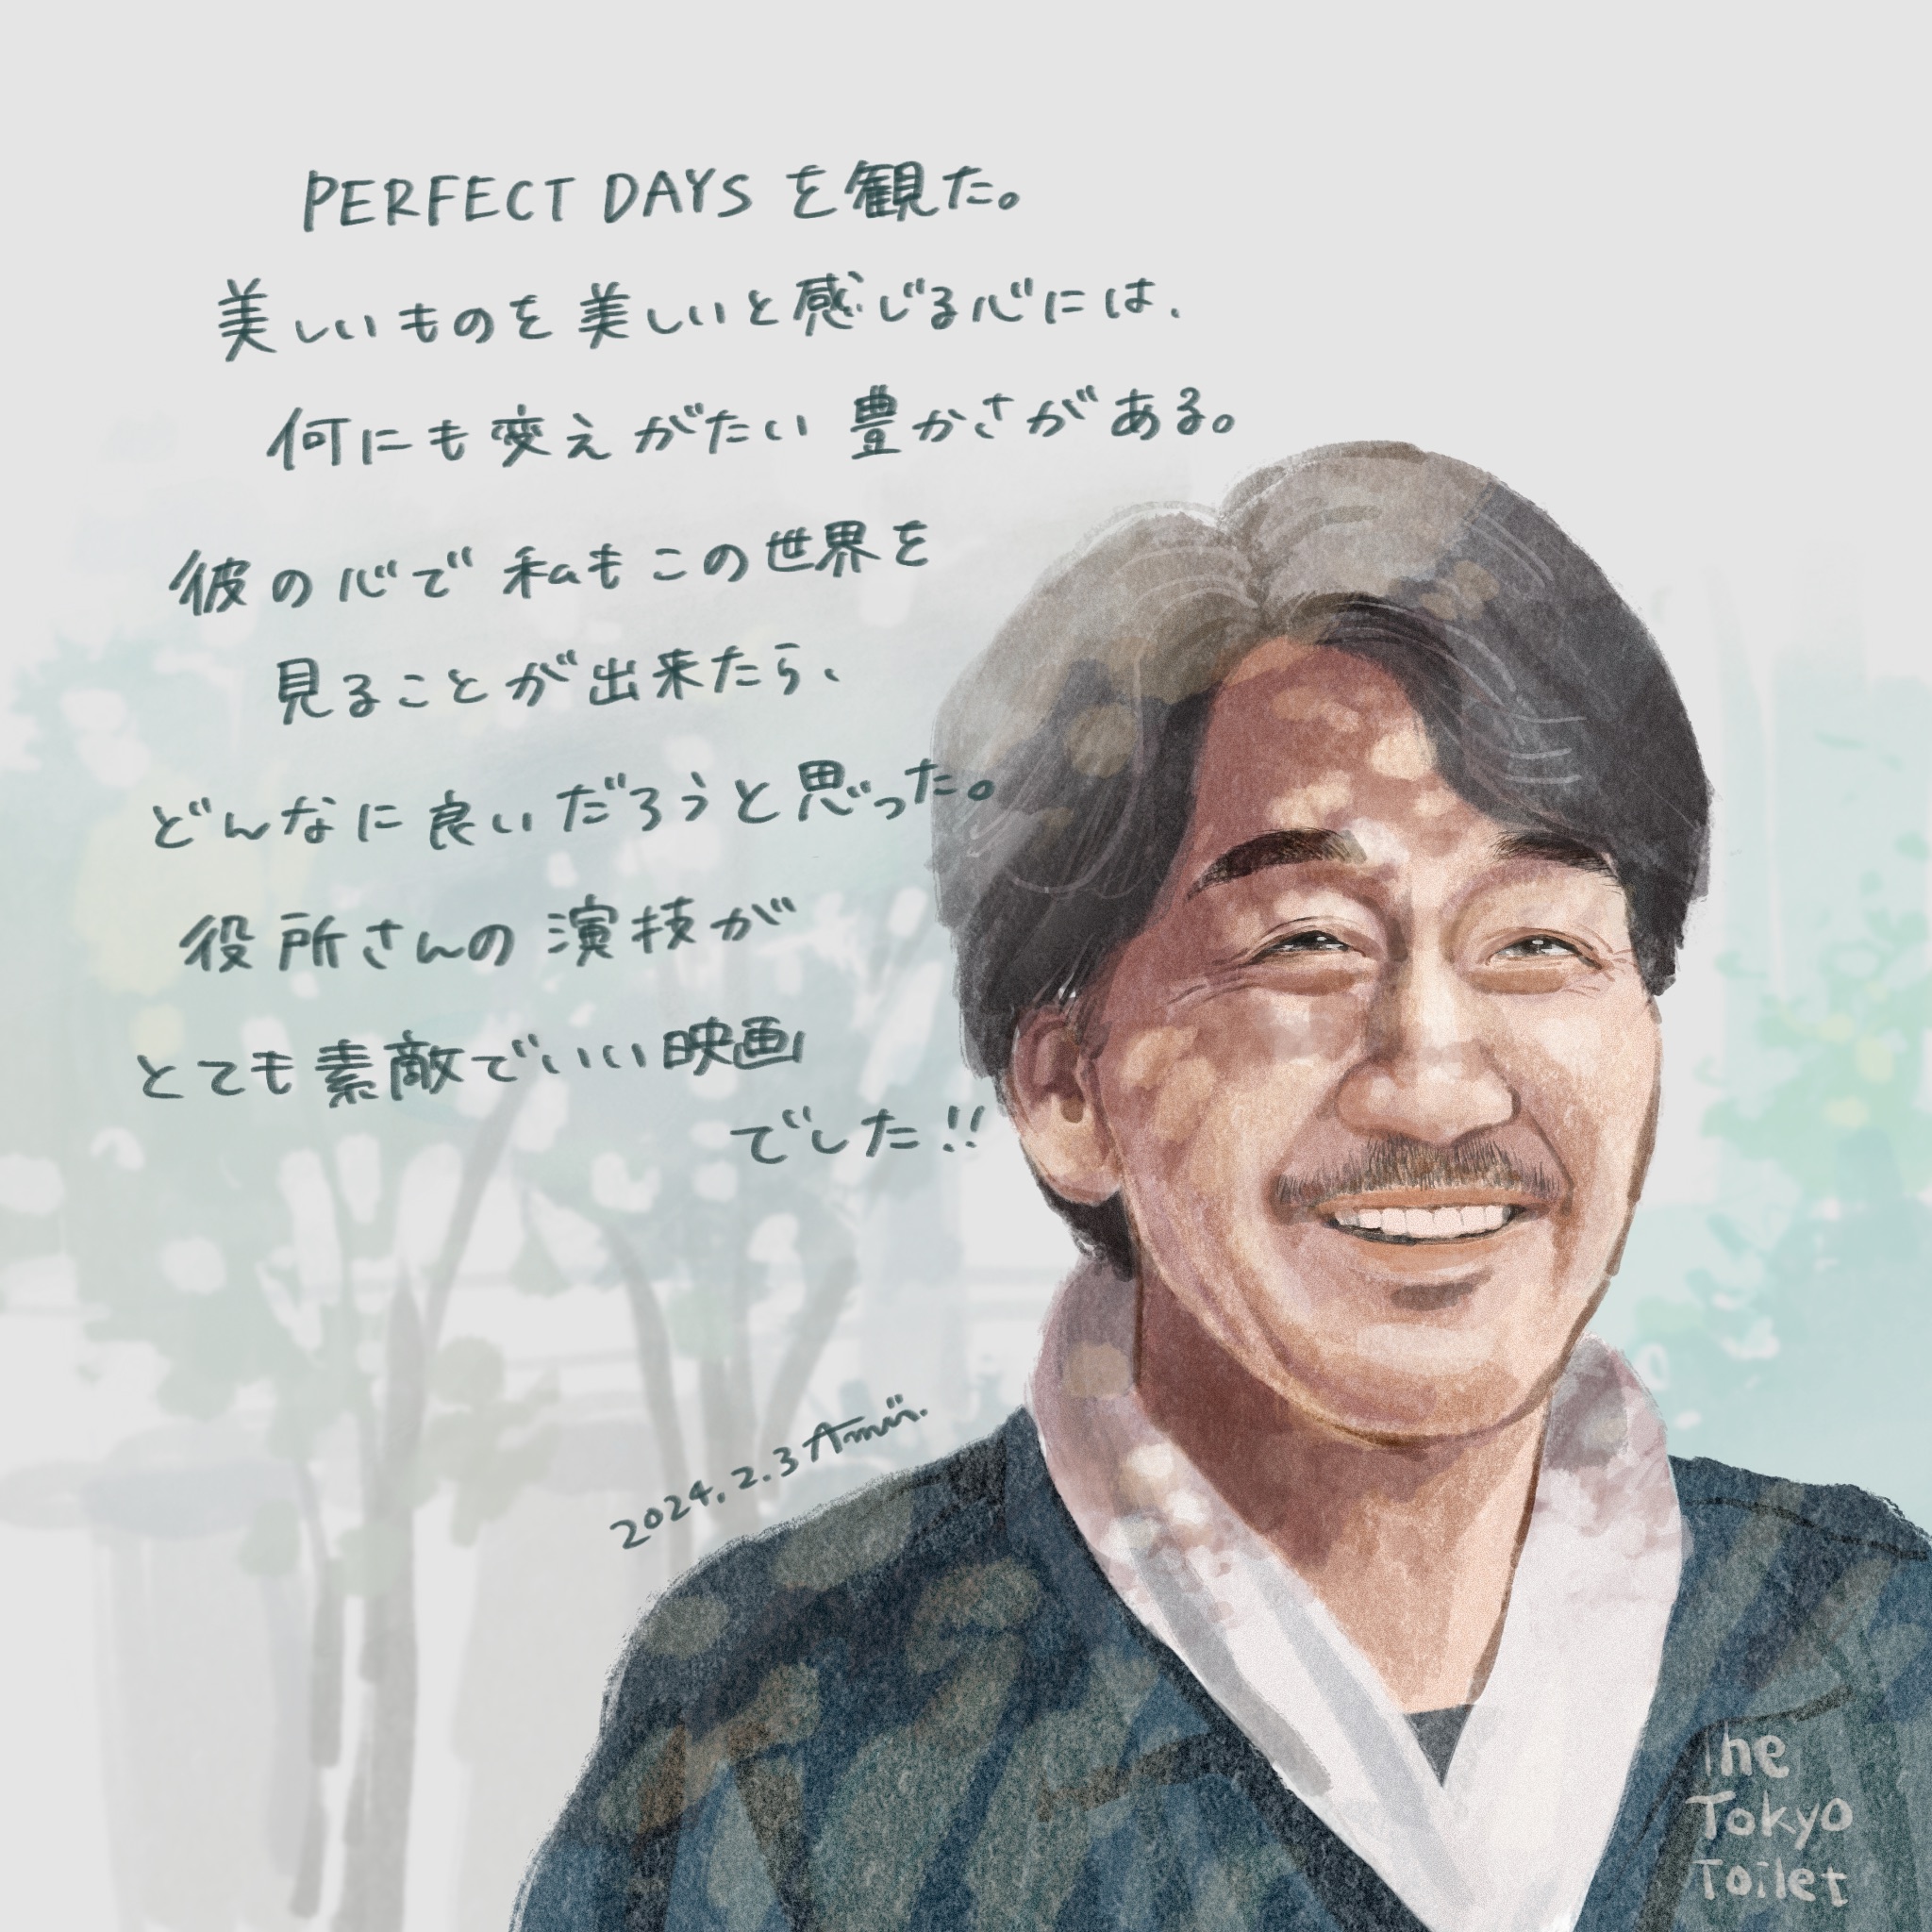 PERFECT DAYS を観た。
美しいものを美しいと感じる心には、
何にも変えがたい豊かさがある。
彼の心で私もこの世界を
見ることが出来たら、
どんなに良いだろうと思った。
役所さんの演技が
とても素敵でいい映画
でした!!
2024.2.3
The
Tokyo
Toilet